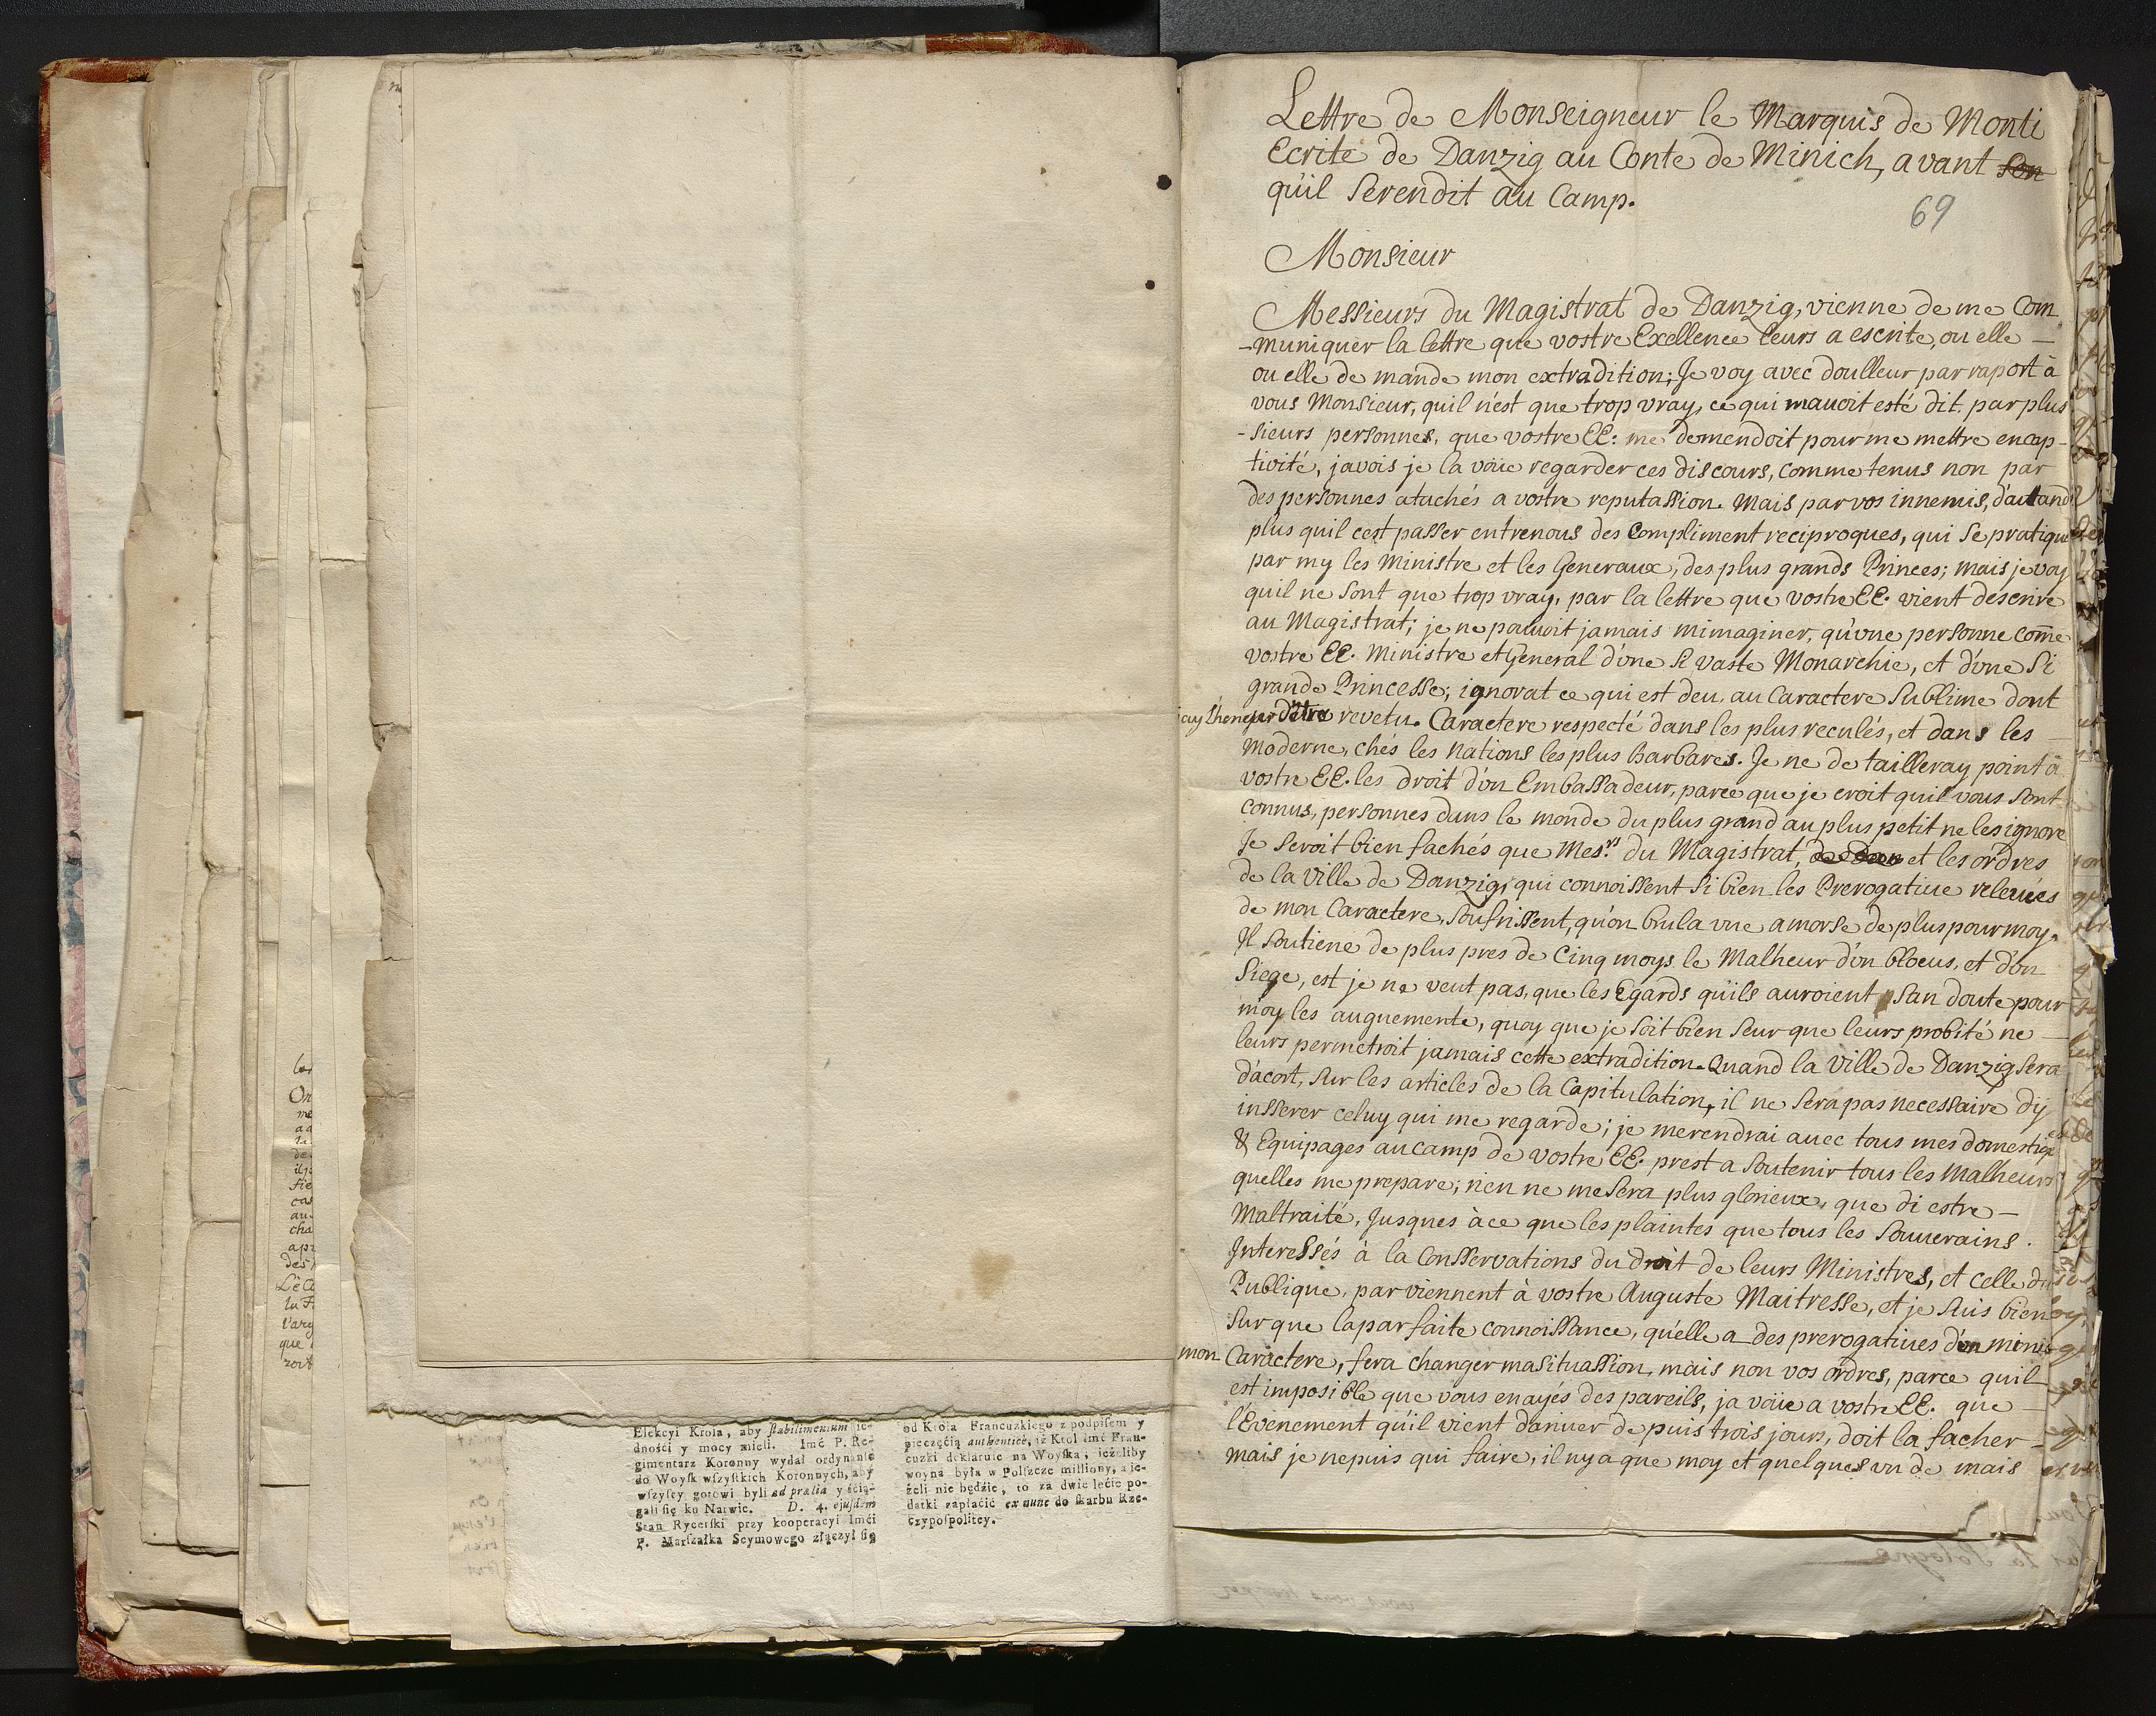 Lettre de Monseigneur le Marquis de Monti
Ecrite de Danzig au Conte de Minich, avant son
qu'il Serendit au Camp.
69
Monsieur
Messieurs du Magistrat de Danzig, vienne de me Com
-muniquer la lettre que vostre Exellence leurs a escrite, ou elle —
ou elle de mande mon extradition; Je voy avec doulleur par raport à
vous Monsieur, quil n'est que trop vray, ce qui mauoit esté dit par plus
-sieurs personnes, que vostre EE: me demendoit pour me mettre en cap-
tivité, javois je la voüe regarder ces discours, comme tenus non par
des personnes atachés a vostre reputassion. Mais par vos innemis, d'auttand
plus quil cest passer entrenous des Compliment reciproques, qui se pratique
par my les Ministre et les Generaux, des plus grands Princes; mais je voy
quil ne sont que trop vray, par la lettre que vostre EE. vient descrire
au Magistrat; je ne pouuoit jamais mimaginer, qu'vne personne come
vostre EE. Ministre et General d'vne si vaste Monarchie, et d'vne si
grande Princesse; ignorat ce qui est deu au Caractere sublime dont
jay l'heneur d'être revetu. Caractere respecté dans les plus reculés, et dans les —
moderne, chés les Nations les plus barbares. Je ne de tailleray point à
vostre EE. les droit d'vn Embassadeur, parce que je croit quil vous sont
connus, personnes dans le monde du plus grand au plus petit ne les ignore
Je seroit bien fachés que Mes.rs du Magistrat, de Dan et les ordres
de la Ville de Danzig, qui connoissent si bien les Prerogatiue releuées
de mon Caractere, soufrissent, qu'on brula vne amorse de plus pour moy.
Il soutiene de plus pres de Cinq moys le Malheur d'vn blocus, et d'vn
Siege, est je ne veut pas, que les Egards qu'ils auroient san doute pour
moy les augmente, quoy que je soit bien seur que leurs probité ne —
leurs permetroit jamais cette extradition. Quand la Ville de Danzig sera
d'acort, sur les articles de la Capitulation, il ne sera pas necessaire dÿ
insserer celuy qui me regarde; je merendrai auec tous mes domestiq
& Equipages au camp de vostre EE. prest a soutenir tous les Malheurs
quelles me prepare; rien ne me sera plus glorieux, que di estre —
Maltraité, Jusques à ce que les plaintes que tous les Souuerains.
Interessés à la Consservations du droit de leurs Ministres, et celle du
Publique, par viennent à vostre Auguste Maitresse, et je suis bien
sur que la parfaite connoissance, qu'elle a des prerogatiues d'vn minis
mon Caractere, fera changer ma situassion, mais non vos ordres, parce quil
est imposible que vous en ayés des pareils, ja voüe a vostre EE. que —
l'Evenement qu'il vient dariuer de puis trois jours, doit la facher —
mais je nepuis qui faire, il ny a que moy et quelques vn de mais
Elekcyi Krola, aby stabilimentum je-
dności y mocy mieli. Imć P. Re-
gimentarz Koronny wydał ordynanse
do Woysk wszystkich Koronnych, aby
wszyscy gotowi byli ad prælia y ścią-
gali się ku Narwie. D. 4. ejusdem
Stan Rycerski przy kooperacyi Imći
P. Marszałka Seymowego złączył się
od Krola Francuzkiego z podpisem y
pieczęćią authenticè, iż Krol Imć Fran-
cuzki deklaruie na Woyska, ieżeliby
woyna była w Polszcze milliony, a ie-
żeli nie będzie, to za dwie lećie po-
datki zapłaćić ex nunc do skarbu Rze-
czypospolitey.